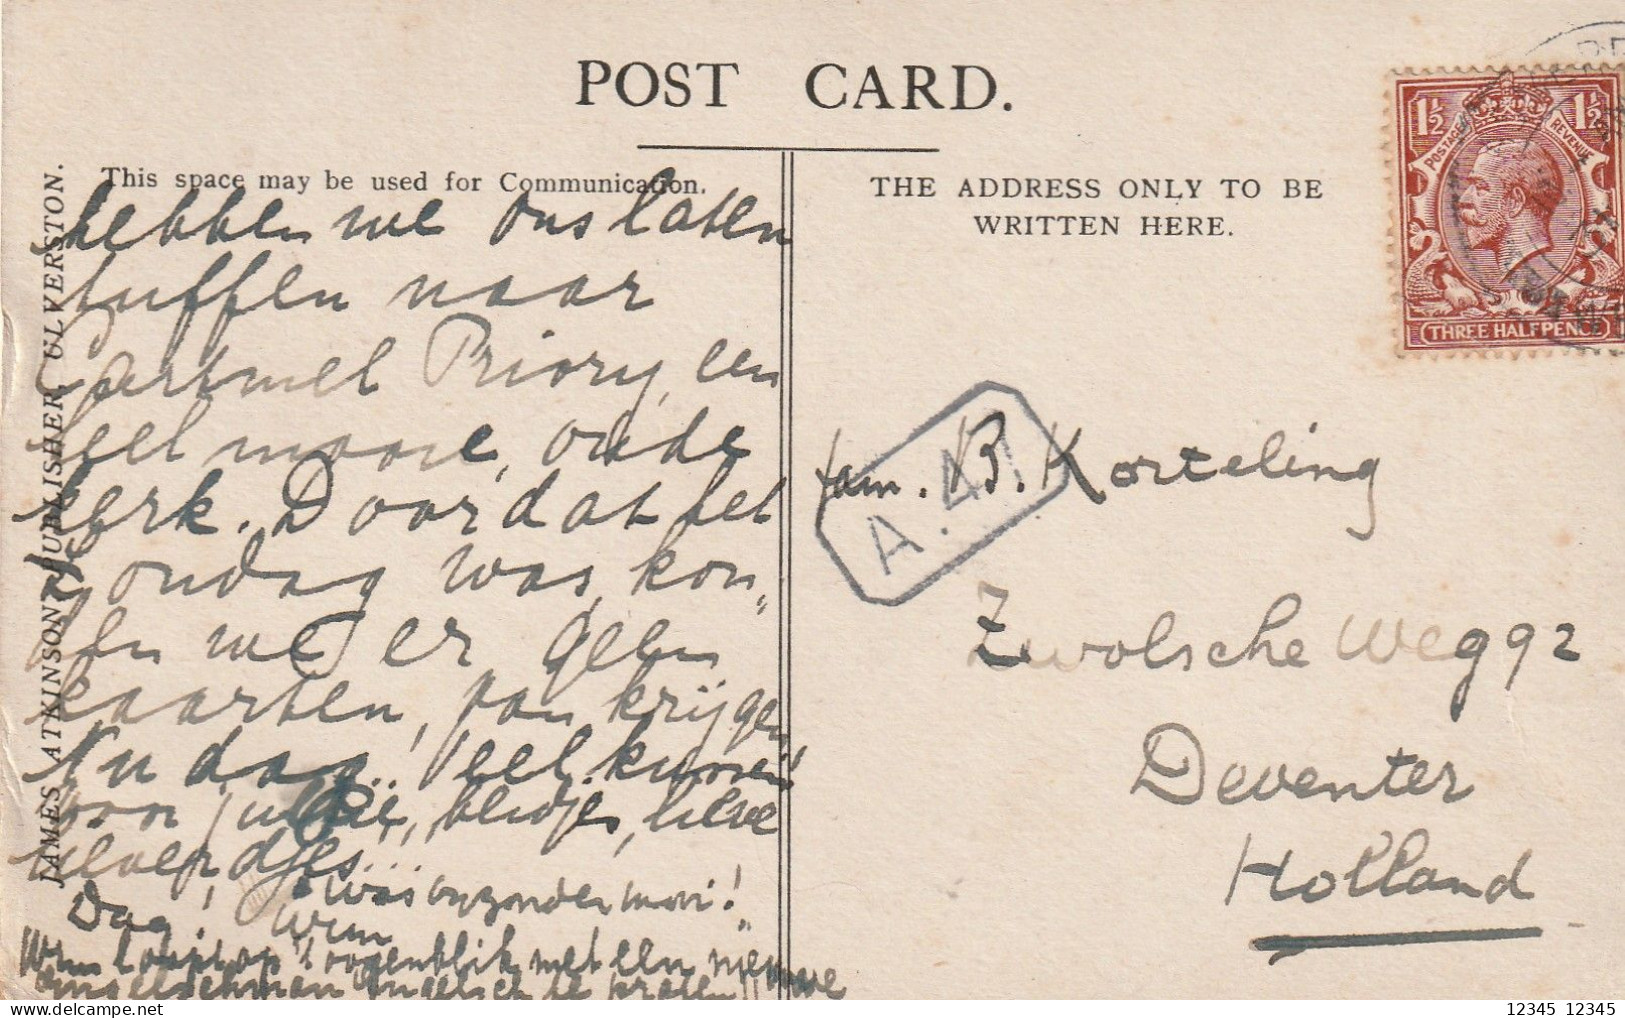 POST CARD.
This space may be used for Communication.
THE ADDRESS ONLY TO BE
WRITTEN HERE.
JAMES ATKINSON, PUBLISHER, ULVERSTON.
1½ 1½
POSTAGE REVENUE
THREE HALFPENCE
A.41
hebben we ons laten
tuffen naar
Cartmel Priory, een
heel mooie, oude
kerk. Doordat het
Zondag was, kon=
den we er geen
kaarten van krijgen
Nu dag!.. Veel kussen
van jullie,
lieverdjes!...
Dag! 't was byzonder mooi!
Wim
Wim loopt op 't oogenblik met een nieuwe
Engelschman Engelsch te praten
Fam. B. Korteling
Zwolsche weg 92
Deventer
Holland
12345 12345